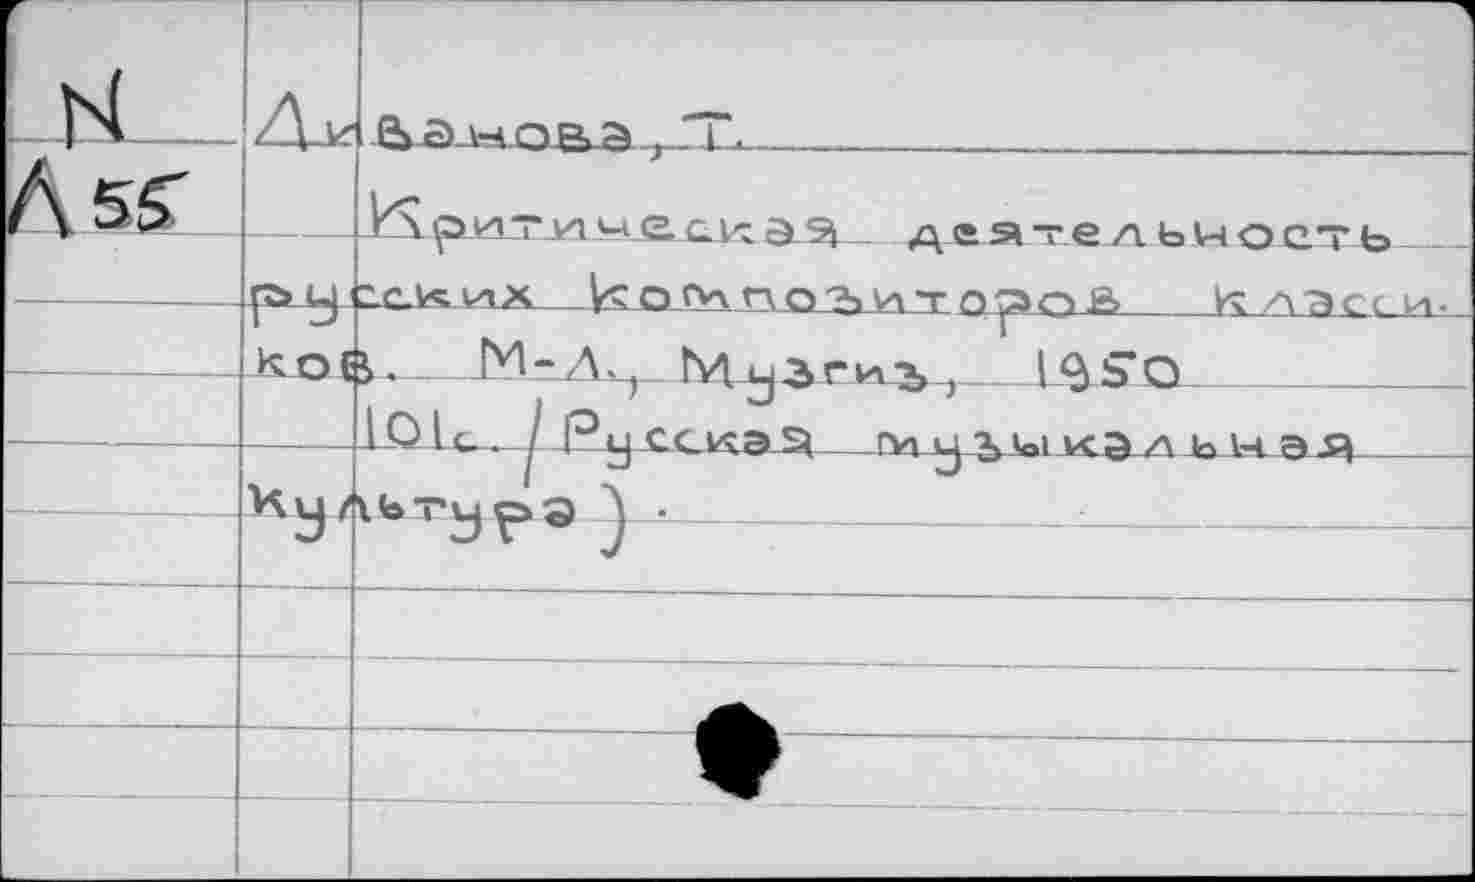 N Диванова, Т.
Л55 Критическая деятельность
русских композиторов класси-
ков. М-Л., Музгиз, 1950
101с. / Русская музыкальная
культура ) .